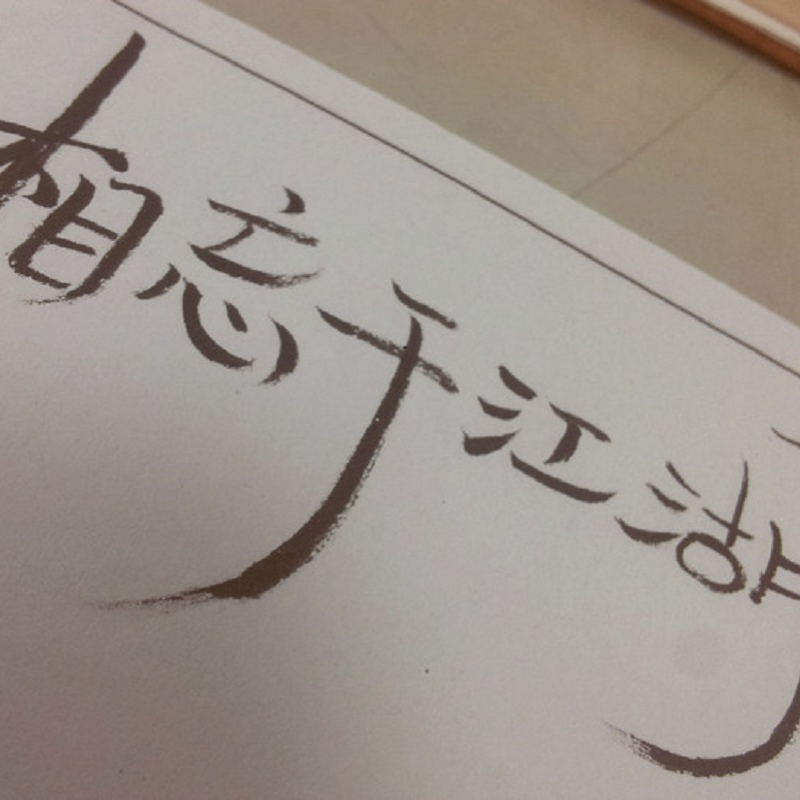 相忘于江湖